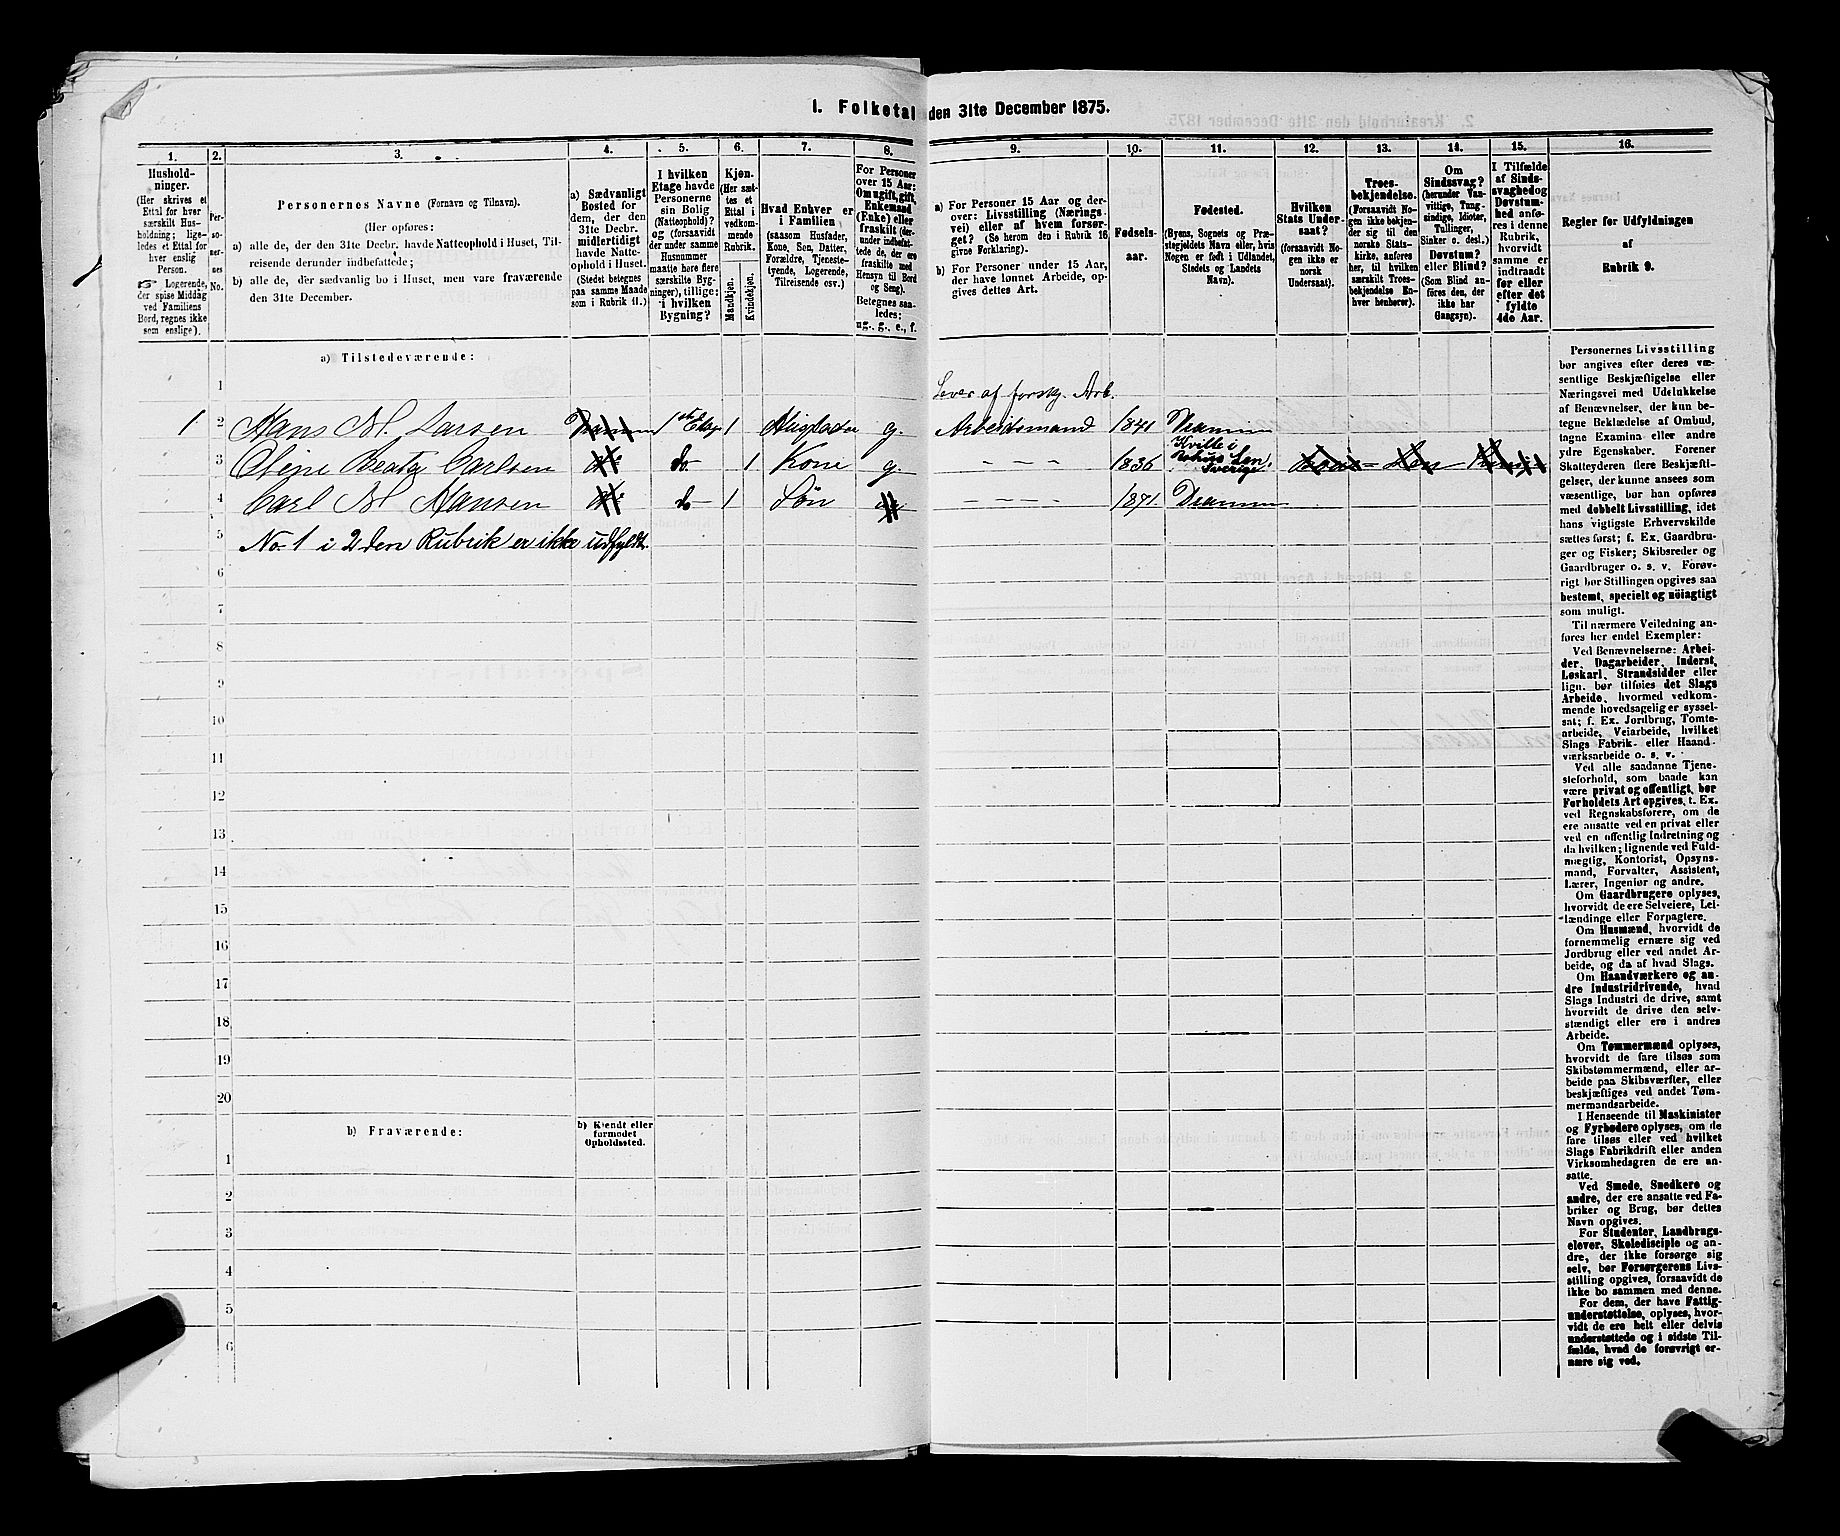 1. Folketal den 31te December 1875.
1. 2. 3. 4. 5. 6. 7. 8. 9. 10. 11. 12. 13. 14. 15. 16.
Hushold-
ninger.
(Her skrives et
Ettal for hver
særskilt Hus-
holdning; lige-
ledes et Ettal for
hver enslig
Person.
Logerende,
der spise Middag
ved Familiens
Bord, regnes ikke
som enslige).
Per-
so-
ner-
nes
No.
Personernes Navne (Fornavn og Tilnavn).
(Her opføres:
a) alle de, der den 31te Decbr. havde Natteophold i Huset, Til-
reisende derunder indbefattede;
b) alle de, der sædvanlig bo i Huset, men vare fraværende
den 31te December.
a) Sædvanligt
Bosted for
dem, der den
31te Decbr.
midlertidigt
havde Natte-
ophold i Huset.
(Stedet betegnes
paa samme Maade
som i Rubrik 11.)
I hvilken
Etage havde
Personerne
sin Bolig
(Natteophold)?
og (forsaavidt
der under samme
Husnummer
maatte høre flere
særskilte Byg-
ninger), tillige:
i hvilken
Bygning?
Kjøn.
(Her sæt-
tes et
Ettal i
vedkom-
mende
Rubrik.
Mandkjøn.
Kvindekjøn.
Hvad Enhver er
i Familien
(saasom Husfader,
Kone, Søn, Datter,
Forældre, Tjeneste-
tyende, Logerende,
Tilreisende osv.)
For Personer
over 15 Aar:
Om ugift, gift,
Enkemand
(Enke) eller
fraskilt (der-
under indbefat-
tede de, der ere
fraskilte med
Hensyn til Bord
og Seng).
Betegnes saa-
ledes:
ug., g., e., f.
a) For Personer 15 Aar og der-
over: Livsstilling (Nærings-
vei) eller af hvem forsør-
get? (Se herom den i Rubrik 16
givne Forklaring).
b) For Personer under 15 Aar,
der have lønnet Arbeide, op-
gives dettes Art.
Fødsels-
aar.
Fødested.
(Byens, Sognets og Præ-
stegjeldets Navn eller, hvis
Nogen er født i Udlandet,
Stedets og Landets
Navn).
Hvilken
Stats Under-
saat?
(forsaavidt No-
gen ikke er
norsk
Undersaat).
Troes-
bekjendelse.
(Forsaavidt No-
gen ikke bekjen-
der sig til den
norske Stats-
kirke, anføres
her, til hvilken
særskilt Troes-
bekjendelse En-
hver henhører).
Om
Sindssvag?
(herunder Van-
vittige, Tung-
sindige, Idioter,
Tullinger,
Sinker o. desl.)
Døvstum?
eller Blind?
(Som Blind an-
føres den, der
ikke har
Gangsyn).
I Tilfælde
af Sinds-
svaghed og
Døvstum-
hed anfø-
res i denne
Rubrik,
hvorvidt
samme er
indtraadt
før eller
efter det
fyldte
4de Aar.
Regler for Udfyldningen
af
Rubrik 9.
a) Tilstedeværende:
1
Lever af forskj. Arb.
1 2 Hans M. Larsen 1ste Etage 1 g. Arbeidsmand 1841 Drammen
3 Beata Carlsen do 1 Kone g. 1836 Kville i Sverige
4 Carl M. Hansen do 1 Søn 1871. Drammen
5 No. 1 i 2den Rubrik er ikke udfyldt.
6
7
8
9
10
11
12
13
14
15
16
17
18
19
20
b) Fraværende:
b) Kjendt eller
formodet
Opholdssted.
1
2
3
4
5
6
Personernes Livsstilling
bør angives efter deres væ-
sentlige Beskjæftigelse eller
Næringsvei med Udelukkelse
af Benævnelser, der kun be-
tegne Beklædelse af Ombud,
tagne Examina eller andre
ydre Egenskaber. Forener
Skatteyderen flere Beskjæfti-
gelser, der kunne ansees som
væsentlige, bør han opføres
med dobbelt Livsstilling, idet
hans vigtigste Erhvervskilde
sættes først; f. Ex. Gaardbru-
ger og Fisker; Skibsreder og
Gaardbruger o. s. v. Forøv-
rigt bør Stillingen opgives saa
bestemt, specielt og nöiagtigt
som muligt.
Til nærmere Veiledning an-
føres her endel Exempler:
Ved Benævnelserne: Arbei-
der, Dagarbeider, Inderst,
Løskarl, Strandsidder eller
lign. bør tilføies det Slags
Arbeide, hvormed vedkom-
mende hovedsagelig er syssel-
sat; f. Ex. Jordbrug, Tomte-
arbeide, Veiarbeide, hvilket
Slags Fabrik- eller Haand-
værksarbeide o. s. v.
Ved alle saadanne Tjene-
steforhold, som baade kan
være privat og offentligt, bør
Forholdets Art opgives, t. Ex.
ved Regnskabsførere, om de
ere ansatte ved en privat eller
ved en offentlig Indretning og
da hvilken; lignende ved Fuld-
mægtig, Kontorist, Opsyns-
mand, Forvalter, Assistent,
Lærer, Ingeniør og andre.
Om Gaardbrugere oplyses,
hvorvidt de ere Selveiere, Lei-
lændinge eller Forpagtere.
Om Husmænd, hvorvidt de
fornemmelig ernære sig ved
Jordbrug eller ved andet Ar-
beide, og da af hvad Slags.
Om Haandværkere og an-
dre Industridrivende, hvad
Slags Industri de drive, samt
hvorvidt de drive den selv-
stændigt eller ere i andres
Arbeide.
Om Tømmermænd oplyses,
hvorvidt de fare tilsøs som
Skibstømmermænd, eller ar-
beide paa Skibsværfter, eller
beskjæftiges ved andet Tøm-
mermandsarbeide.
I Henseende til Maskinister
og Fyrbødere oplyses, om de
fare tilsøs eller ved hvilket
Slags Fabrikdrift eller anden
Virksomhedsgren de ere an-
satte.
Ved Smede, Snedkere og
andre, der ere ansatte ved Fa-
briker og Brug, bør dettes
Navn opgives.
For Studenter, Landbrugs-
elever, Skoledisciple og an-
dre, der ikke forsørge sig
selv, bør Forsørgerens Livs-
stilling opgives, forsaavidt de
ikke bo sammen med denne.
For dem, der have Fattig-
understøttelse, oplyses, hvor-
vidt de ere helt eller delvis
understøttede og i sidste Til-
fælde, hvad de forøvrigt er-
nære sig ved.